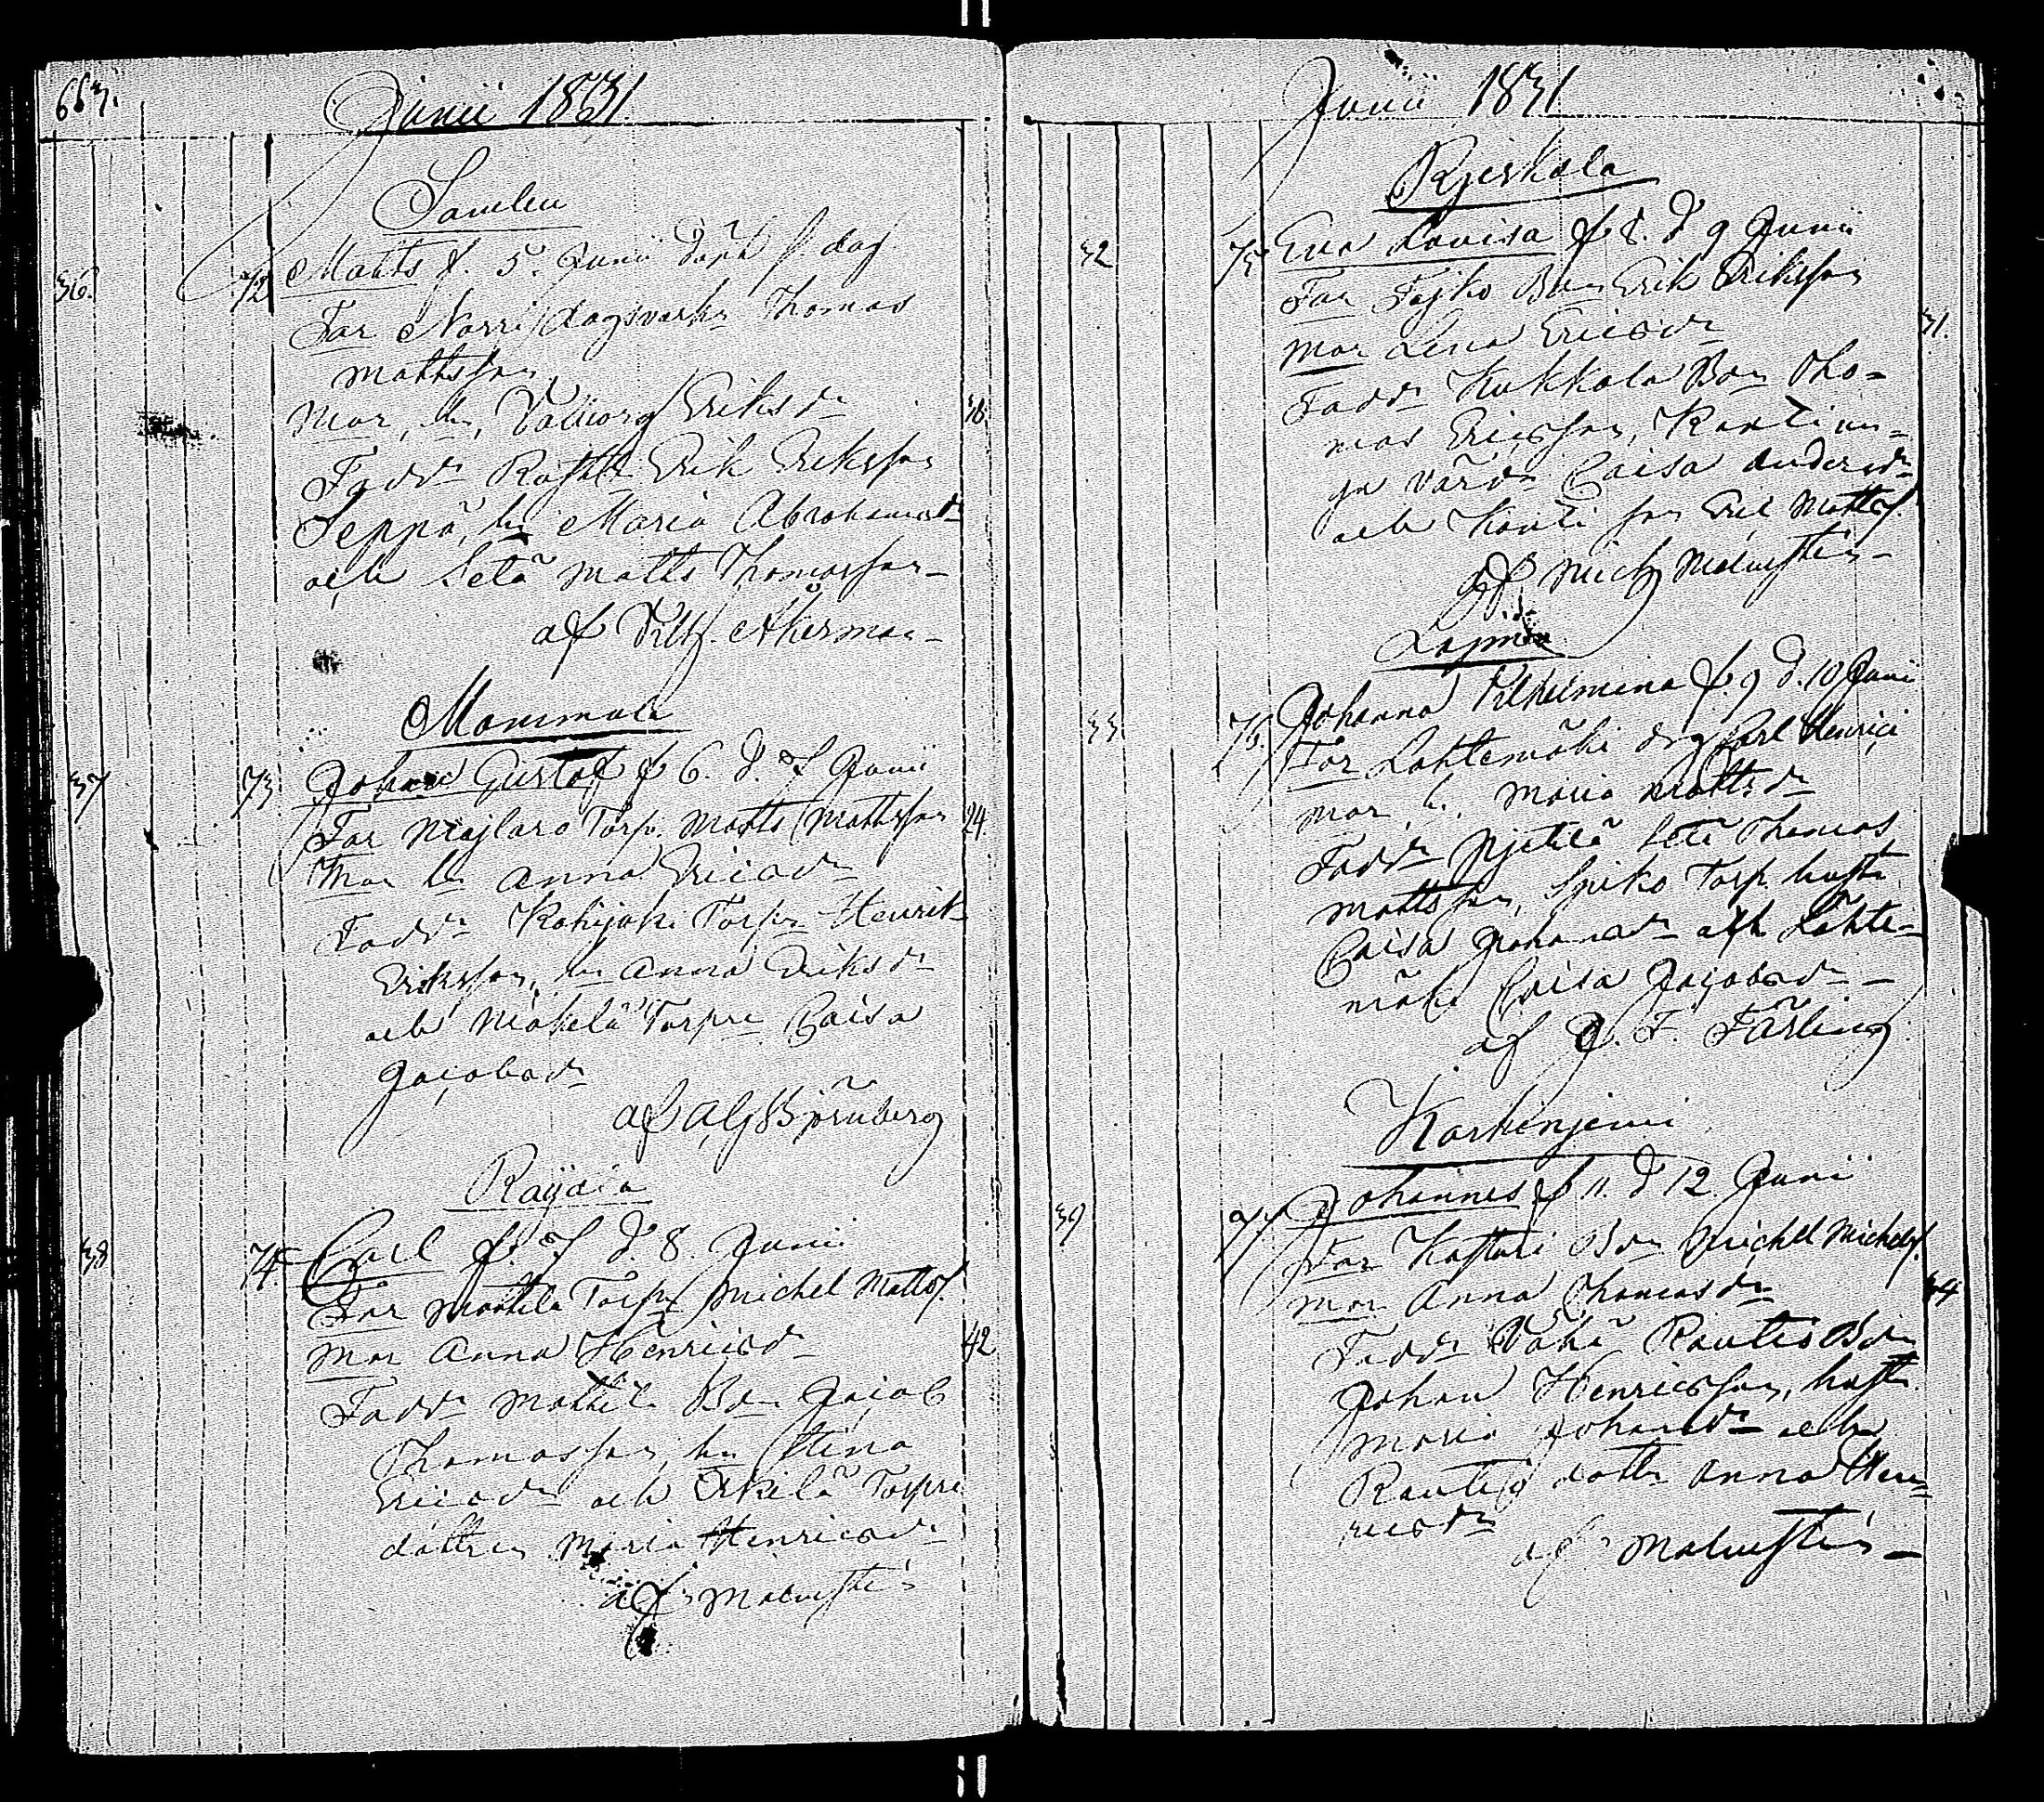 663.
Junii 1831
Samleu
36. 72 Matts f. 5. Junii döpt s. dag
Far Norri dagsvarks Thomas
Mattsson
Mor, hu, Valborg Eriksdr
36.
Faddr Erik Eriksson
Seppä, hu Maria Abrahamsdr
och Setä Matts Thomasson
af Vilh. Åkerman
Mommola
37 73 Johan Gustaf f 6. d. 7 Junii
Far Majlara Torp. Matts Mattsson 24.
Mor hu Anna Ericsdr
Faddr Torpr Henrik
Eriksson, hu Anna Eriksdr
och Mäkelä Torpre Caisa
Jacobsdr
af A G Björnberg
Rajala
38 74. Carl f. 7 d. 8. Junii
Far Mattila Torpr Michel Matts.
Mor Anna Henricsdr 42
Faddr Mattila Bdn Jacob
Thomasson, hu Stina
Ericsdr och Erkilä Torpre
dottren Maria Henricsdr
af Malmsten
Junii 1831
Kjerkola
32 75 Eva Lovisa f 8. d 9 Junii
Far Bdn Erik Eriksson
31.
Mor Lena Ericsdr
Faddr Kukkola Bdn Tho=
mas Ericsson,
värdn Caisa Andersdr
och son Eric Matts.
af Mich Malmsten
33 76. Johanna Vilhelmina f. 9 d. 10 Juni
Far Lahtemäki Carl Henrici
Mor, h. Maria Mattsdr
Faddr Setä Thomas
Mattsson, Torp. hustr
Caisa Johansdr och Lahte-
mäki Caisa Jacobsdr
af J. F. Färling
Karkenjemi
39 77 Johannes f 11. d 12 Junii
Far Kasturi Bdn Michel Michels.
Mor Anna Thomasdr 44
Faddr Vähä Rautio Bdn
Johan Henricsson, hustr
Maria Johansdr och
Rautio dottr Anna Hen=
ricsdr
af Malmsten